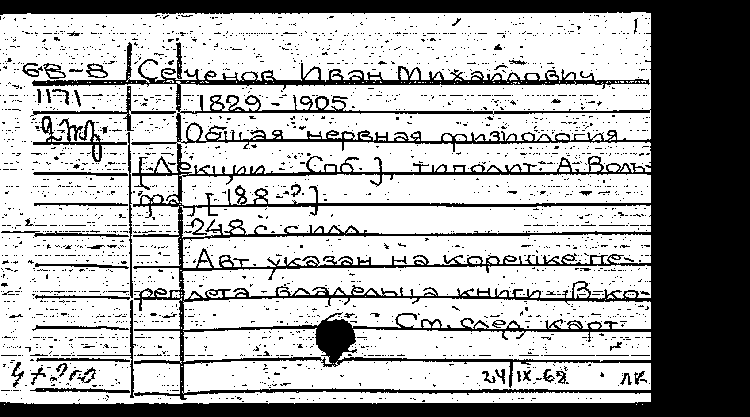 68-8 Сеченов, Иван Михайлович,
1171 1829-1905.
2 экз. Общая нервная физиология.
[Лекции. Спб.], типолит. А. Воль-
фа, [188-?].
248 с. с илл.
Авт. указан на корешке пе-
реплета владельца книги. (В ко-
См. след. карт.
24/IX-68 ЛК